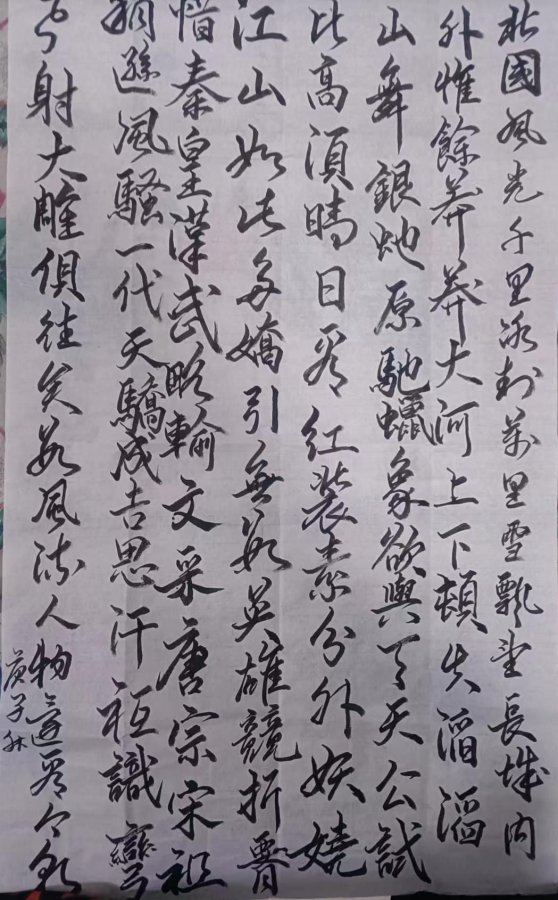 北國風光千里冰封萬里雪飄望長城内
外惟餘莽莽大河上下頓失滔滔
山舞銀虵原馳蠟象欲與天公試
比高須晴日看紅裝素分外妖嬈
江山如此多嬌引無數英雄競折腰
惜秦皇漢武略輸文采唐宗宋祖
稍遜風騷一代天驕成吉思汗祗識彎
弓射大雕俱往矣數風流人物還看今朝
庚子秋